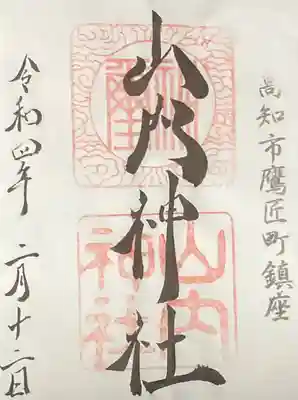 高知市鷹匠町鎮座
山内神社
令和四年 二月十二日
山内
神社